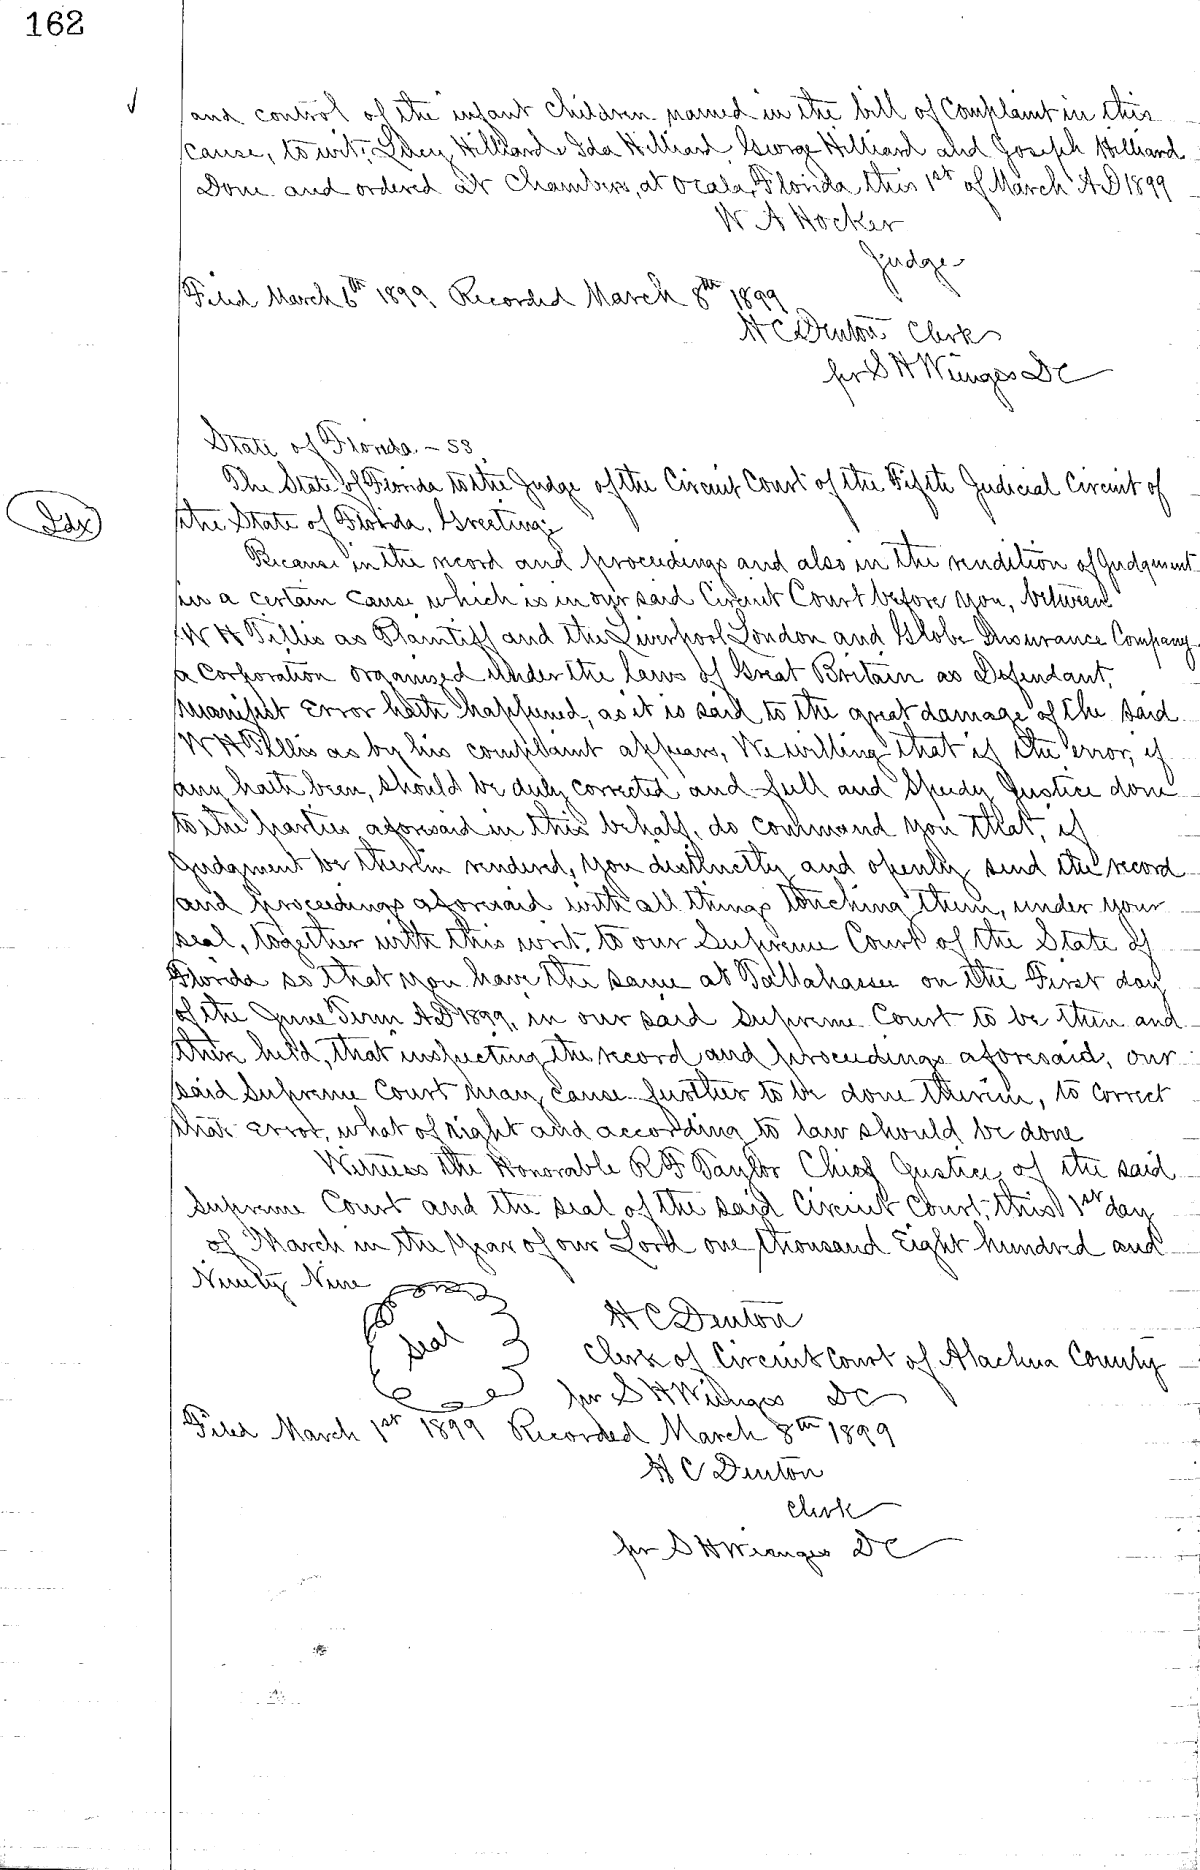 162
✓
and control of the infant children named in the bill of Complaint in this
cause, to wit; Lucy Hilliard Ida Hilliard George Hilliard and Joseph Hilliard
Done and ordered at Chambers, at Ocala, Florida this 1st of March AD 1899
W A Hocker
Judge
Filed March 6th 1899 Recorded March 8th 1899
H C Denton Clerk
per S H Wienges DC
State of Florida - SS
The State of Florida to the Judge of the Circuit Court of the Fifth Judicial Circuit of
Idx
the State of Florida. Greeting;
Because in the record and proceedings and also in the rendition of Judgment
in a certain cause which is in our said Circuit Court before you, between
W H Tillis as Plaintiff and the Liverpool London and Globe Insurance Company
a Corporation organized under the laws of Great Britain as Defendant,
manifest Error hath happened, as it is said to the great damage of the said
W H Tillis as by his complaint appears, We willing that if the error, if
any hath been, should be duly corrected and full and Speedy Justice done
to the parties aforesaid in this behalf, do command you that, if
Judgment be therein rendered, you distinctly and openly send the record
and proceedings aforesaid with all things touching them, under your
seal, together with this writ, to our Supreme Court of the State of
Florida so that you have the same at Tallahassee on the First day
of the June Term AD 1899, in our said Supreme Court to be then and
there held, that inspecting the record and proceedings aforesaid, our
said Supreme Court may cause further to be done therein, to correct
that Error, what of right and according to law should be done
Witness the Honorable R F Taylor Chief Justice of the said
Supreme Court and the seal of the said Circuit Court, this 1st day
of March in the Year of our Lord one thousand Eight hundred and
Ninety Nine
Seal
H C Denton
Clerk of Circuit Court of Alachua County
per S H Wienges DC
Filed March 1st 1899 Recorded March 8th 1899
H C Denton
Clerk
per S H Wienges DC